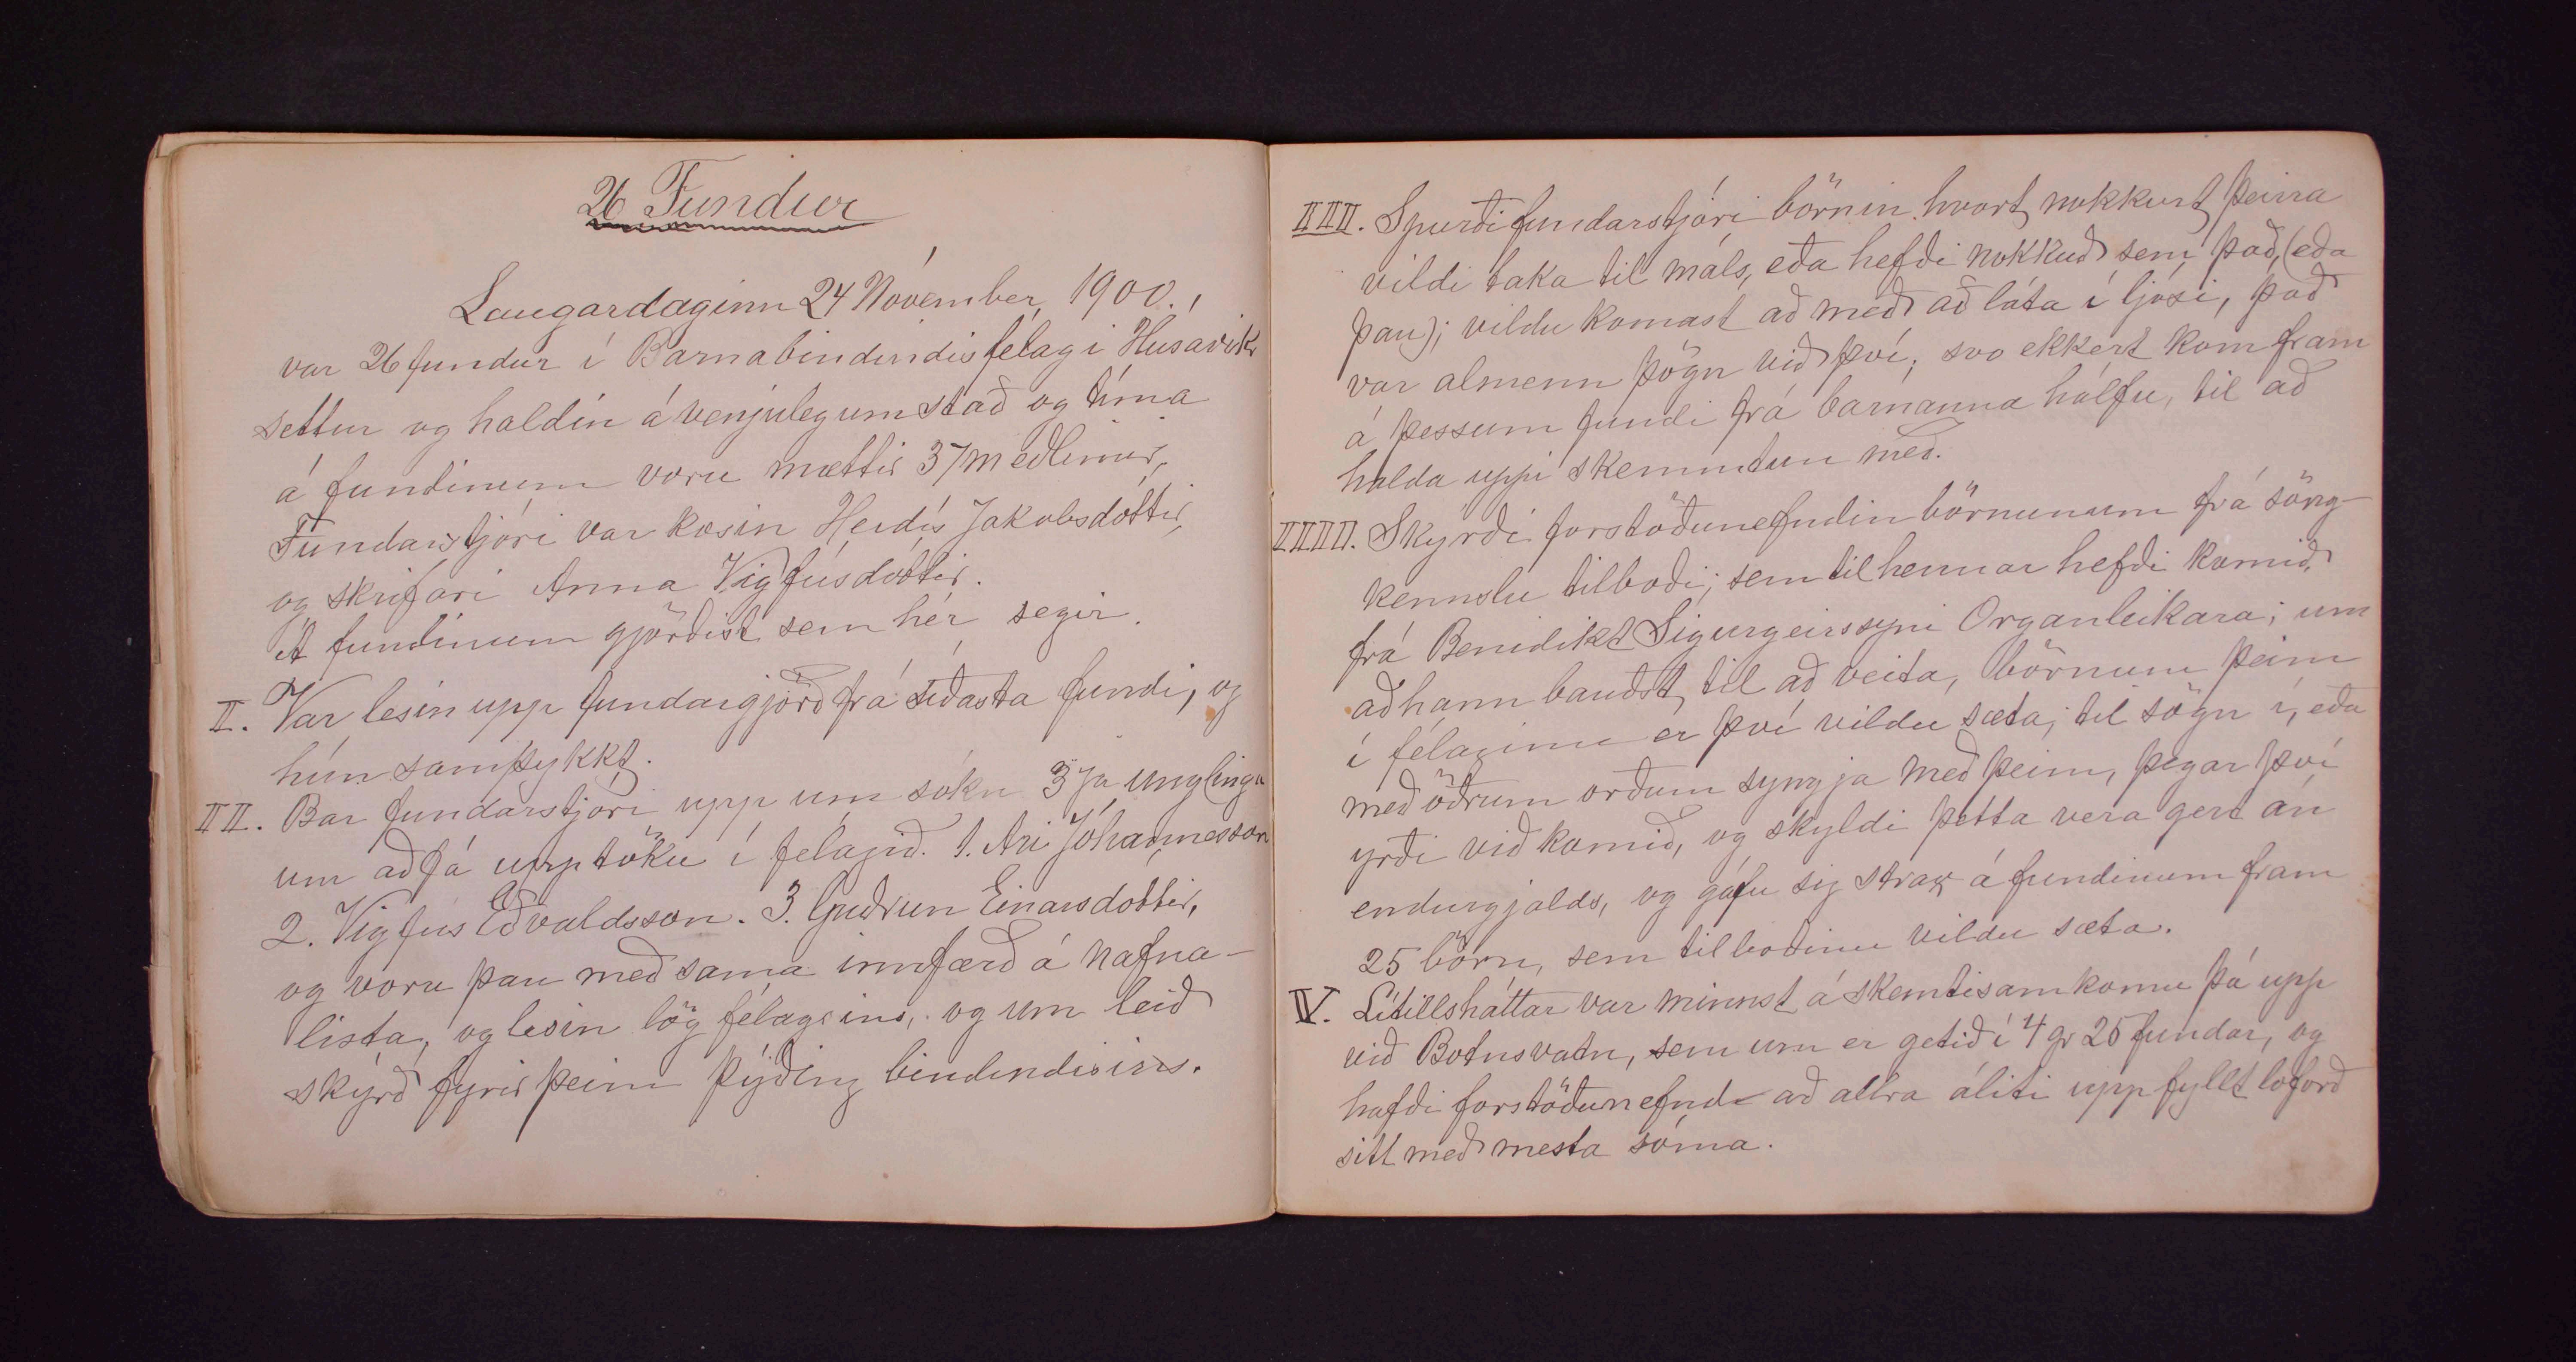 26 Fundur
Laugardaginn 24 Nóvember, 1900.,
var 26 fundur í Barnabindindisfélagi Húsavíkr
settur og haldin á venjulegum stað og tíma
á fundinum voru mættir 37 meðlimir,
Fundarstjóri var kosin Herdís Jakobsdóttir,
og skrifari Anna Vigfúsdóttir.
Á fundinum gjörðist sem hér segir.
I. Var lesin upp fundargjörð frá síðasta fundi, og
hún samþykkt.
II. Bar fundarstjóri upp um sókn 3ja unglinga
um að fá upptöku í felagið. 1. Ari Jóhannesson
2. Vigfús Eðvaldsson. 3. Guðrun Einarsdóttir,
og voru þau með sama innfærð á nafna-
lista, og lesin lög félagsins, og um leið
skýrð fyrir þeim þýðing bindindisins.
III. Spurði fundarstjóri börnin hvort nokkurt þeirra
vildi taka til máls, eða hefði nokkuð sem það, (eða
þau); vildu komast að með að láta í ljósi, það
var almenn þögn við því; svo ekkert kom fram
á þessum fundi frá barnanna hálfu, til að
halda uppi skemmtun með.
IIII. Skyrði forstöðunefndin börnunum frá söng-
kennslu tilboði; sem til hennar hefði komið,
frá Benidikt Sigurgeirssyni Organleikara; um
að hann bauðst til að veita, börnum þeim
í félaginu er því vildu sæta; til sögn í, eða
með öðrum orðum syngja með þeim, þegar því
yrði við komið, og skyldi þetta vera gert án
endurgjalds, og gáfu sig strax á fundinum fram
25 börn, sem tilboðinu vildu sæta.
IV. Lítillsháttar var minnst á skemtisamkomu þá upp
við Botnsvatn, sem um er getið í 4 gr 25 fundar, og
hafði forstöðunefnd að allra áliti uppfyllt loforð
sitt með mesta sóma.